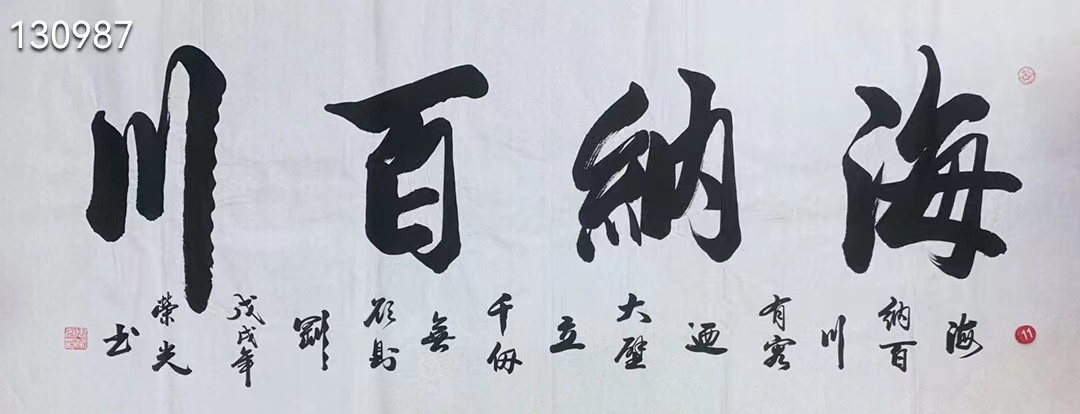 130987
海納百川
海納百川有容迺大壁立千仞無欲則剛
戊戌年
榮光书
11